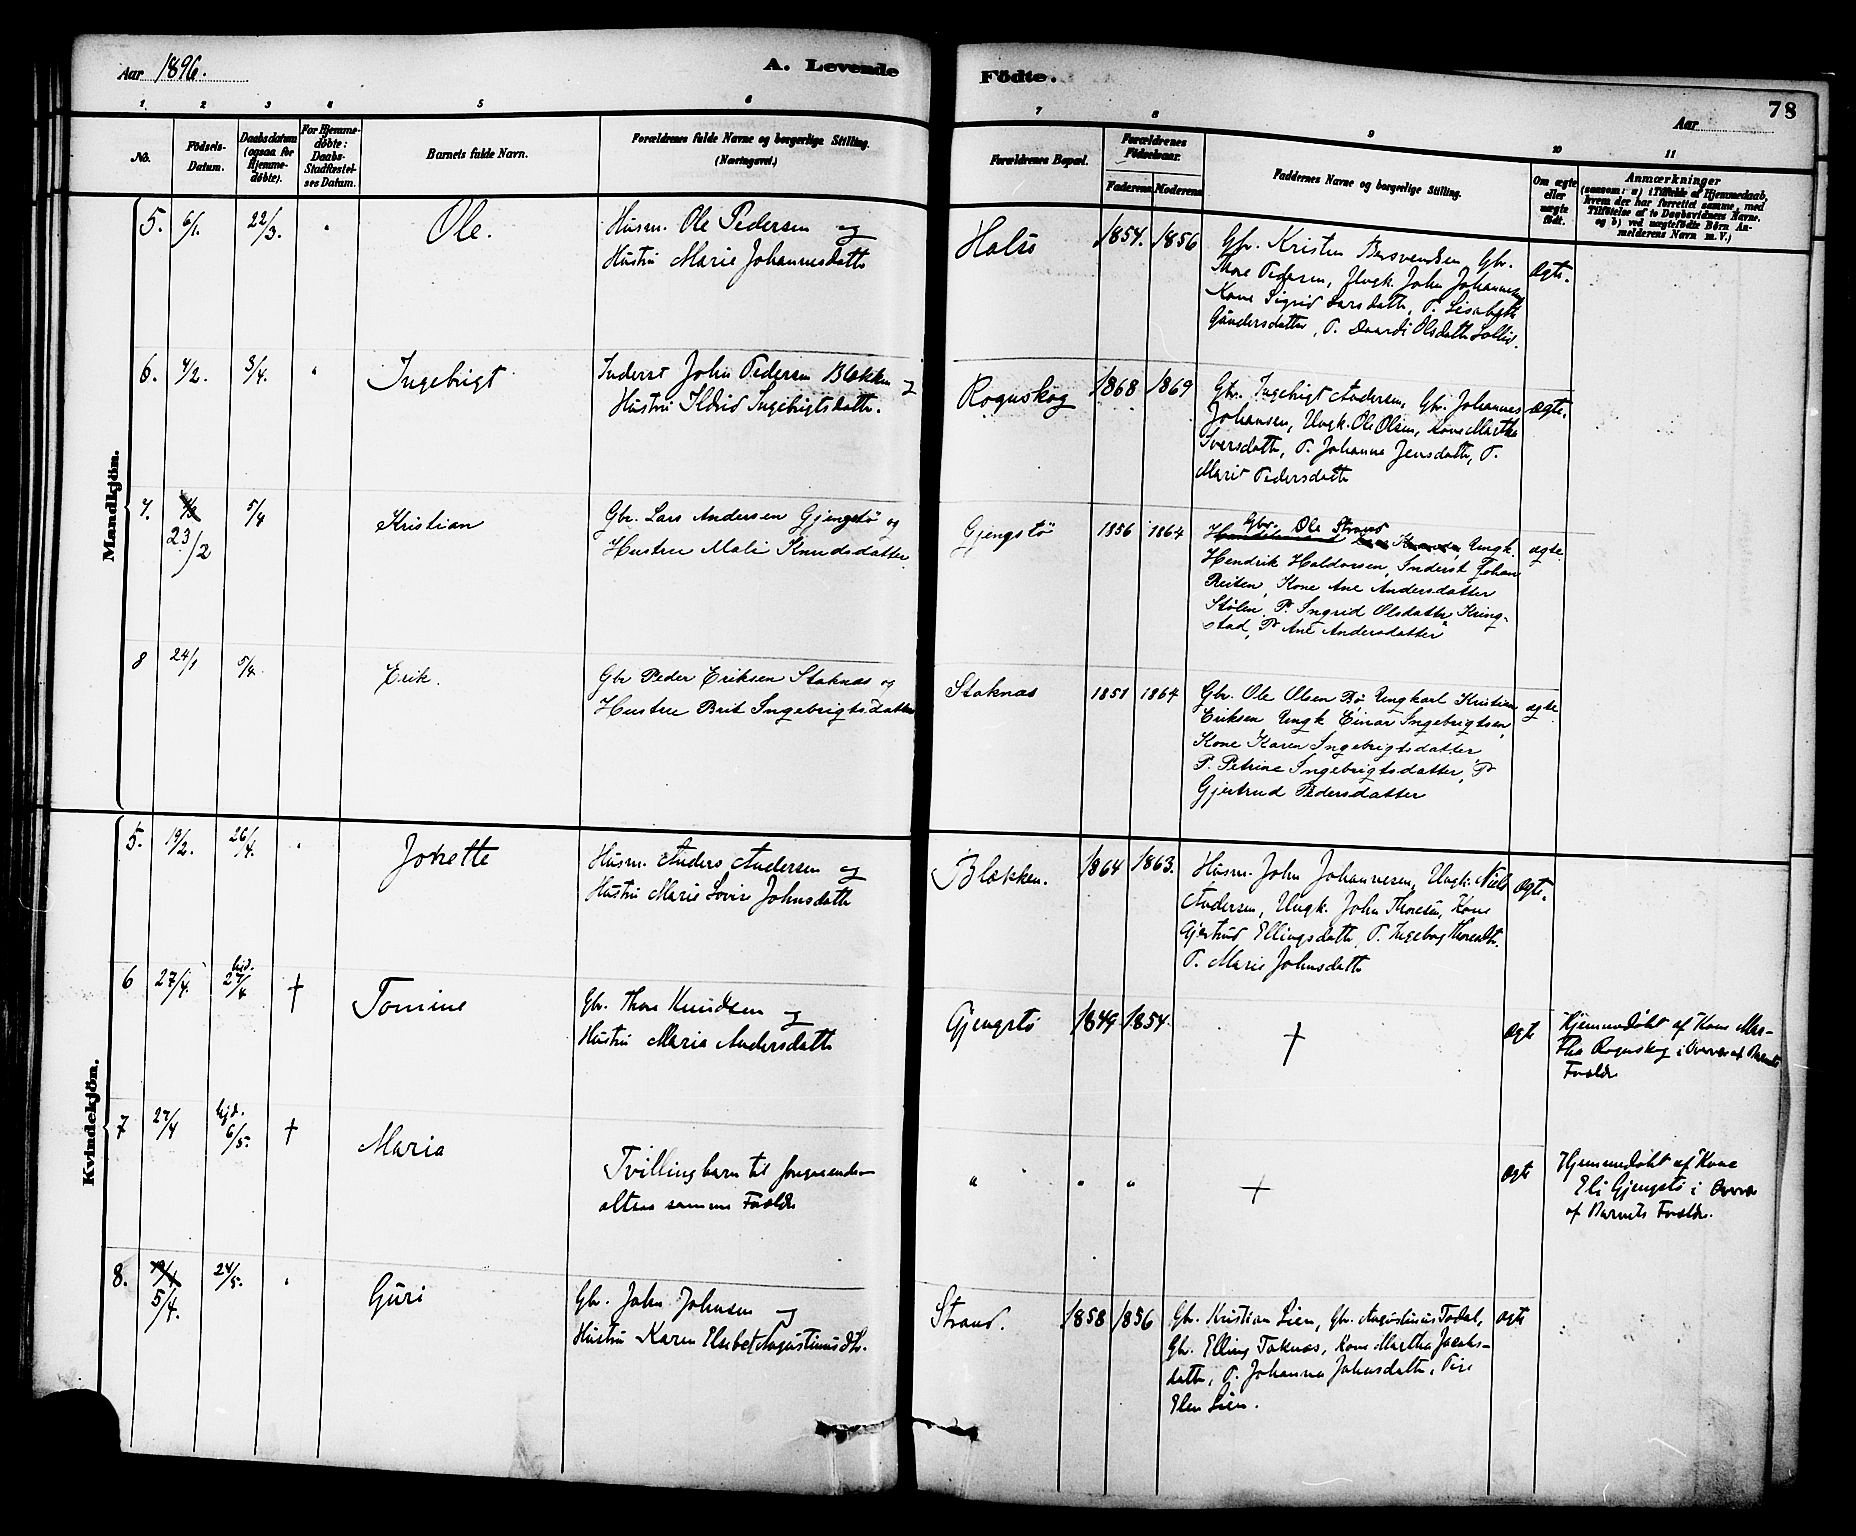 Aar 1896.
A. Levende Födte.
Aar
78
1. 2 3 4 5 6 7 8 9 10 11
No.
Födsels-
Datum.
Daabsdatum
(ogsaa for
Hjemme-
döbte).
For Hjemme-
döbte:
Daabs-
Stadfæstel-
ses Datum.
Barnets fulde Navn.
Forældrenes fulde Navne og borgerlige Stilling.
(Næringsvei.)
Forældrenes Bopæl.
Forældrenes
Födselsaar.
Faderens Moderens
Faddernes Navne og borgerlige Stilling.
Om ægte
eller
uægte
födt.
Anmærkninger
(saasom: a) i Tilfælde af Hjemmedaab,
hvem der har forrettet samme, med
Tilföielse af to Daabsvidners Navne.
og b) ved uægtefödte Börn An-
melderens Navn m. V.)
Mandkjön.
5. 6/1. 22/3. " Ole.
Husm. Ole Pedersen og
Hustru Marie Johannesdatte
1854. 1856
Gbr. Kristen Gbr.
Thore Pedersen, Ungk. John Johannesen
Kone Sigrid Larsdatte, P. Lisabeth
Gundersdatte, P. Olsdatte
Ægte.
6. 4/2. 3/4. " Ingebrigt
Inderst John Pedersen Blekken og
Hustru Ildrid Ingebrigtsdatte.
Rognskog 1868 1869
Gbr. Ingebrigt Andersen, Gbr. Johannes
Johansen, Ungk. Ole Olsen, Kone Marthe
Iversdatte, P. Johanna Jensdatte, P.
Marit Pedersdatte
Ægte.
7. 23/2 5/4 Kristian
Gbr. Lars Andersen Gjengstø og
Hustru Mali Knudsdatter
Gjengstø 1856 1864
Gbr. Ole Strand
Ungk.
Hendrik Haldorsen, Inderst Johan
Reiten, Kone Ane Andersdatter
Stølen, P. Ingrid Olsdatter Kring-
stad, P. Ane Andersdatter
ægte
8 24/1 5/4. Erik.
Gbr Peder Eriksen Stoknæs og
Hustru Brit Ingebrigtsdatter
Stoknæs 1851 1864
Gbr. Ole Olsen Bø Ungkarl Kristian
Eriksen Ungk Einar Ingebrigtsen,
Kone Karen Ingebrigtsdatter
P. Petrine Ingebrigtsdatter, P.
Gjertrud Pedersdatter
ægte
Kvindekjön.
5. 19/2. 26/4. " Jonette
Husm. Anders Andersen og
Hustru Marie Lovise Johnsdatte
Blekken. 1864 1863.
Husm. John Johannesen, Ungk. Niels
Andersen, Ungk. John Thoresen, Kone
Gjertrud Ellingsdatte, P. Ingeborg Thoresdtr.
P. Marie Johnsdatte
Ægte.
6 27/4. hjd. 27/4 † Tomine
Gbr. Thore Knudsen og
Hustru Maria Andersdatte
Gjengstø 1849 1854.
†
Ægte
Hjemmedøbt af Kone Mar-
tha Rognskog i Overvær af Barnets
Forældre
7 27/4 hjd. 6/5. † Maria
Tvillingbarn til foregaaende
altsaa samme Forældre
" " "
†
Ægte
Hjemmedøbt af Kone
Eli Gjengstø i Overvær
af Barnets Forældre.
8. 5/4. 24/5. " Guri
Gbr. John Johnsen og
Hustru Karen Elisbet Augustinusdtr.
Strand. 1858 1856
Gbr. Kristian Lien, Gbr. Augustinus Todal,
Gbr. Elling Taknæs, Kone Martha Jacobs-
datte, P. Johanna Johnsdatte, Pige
Elen Lien.
Ægte